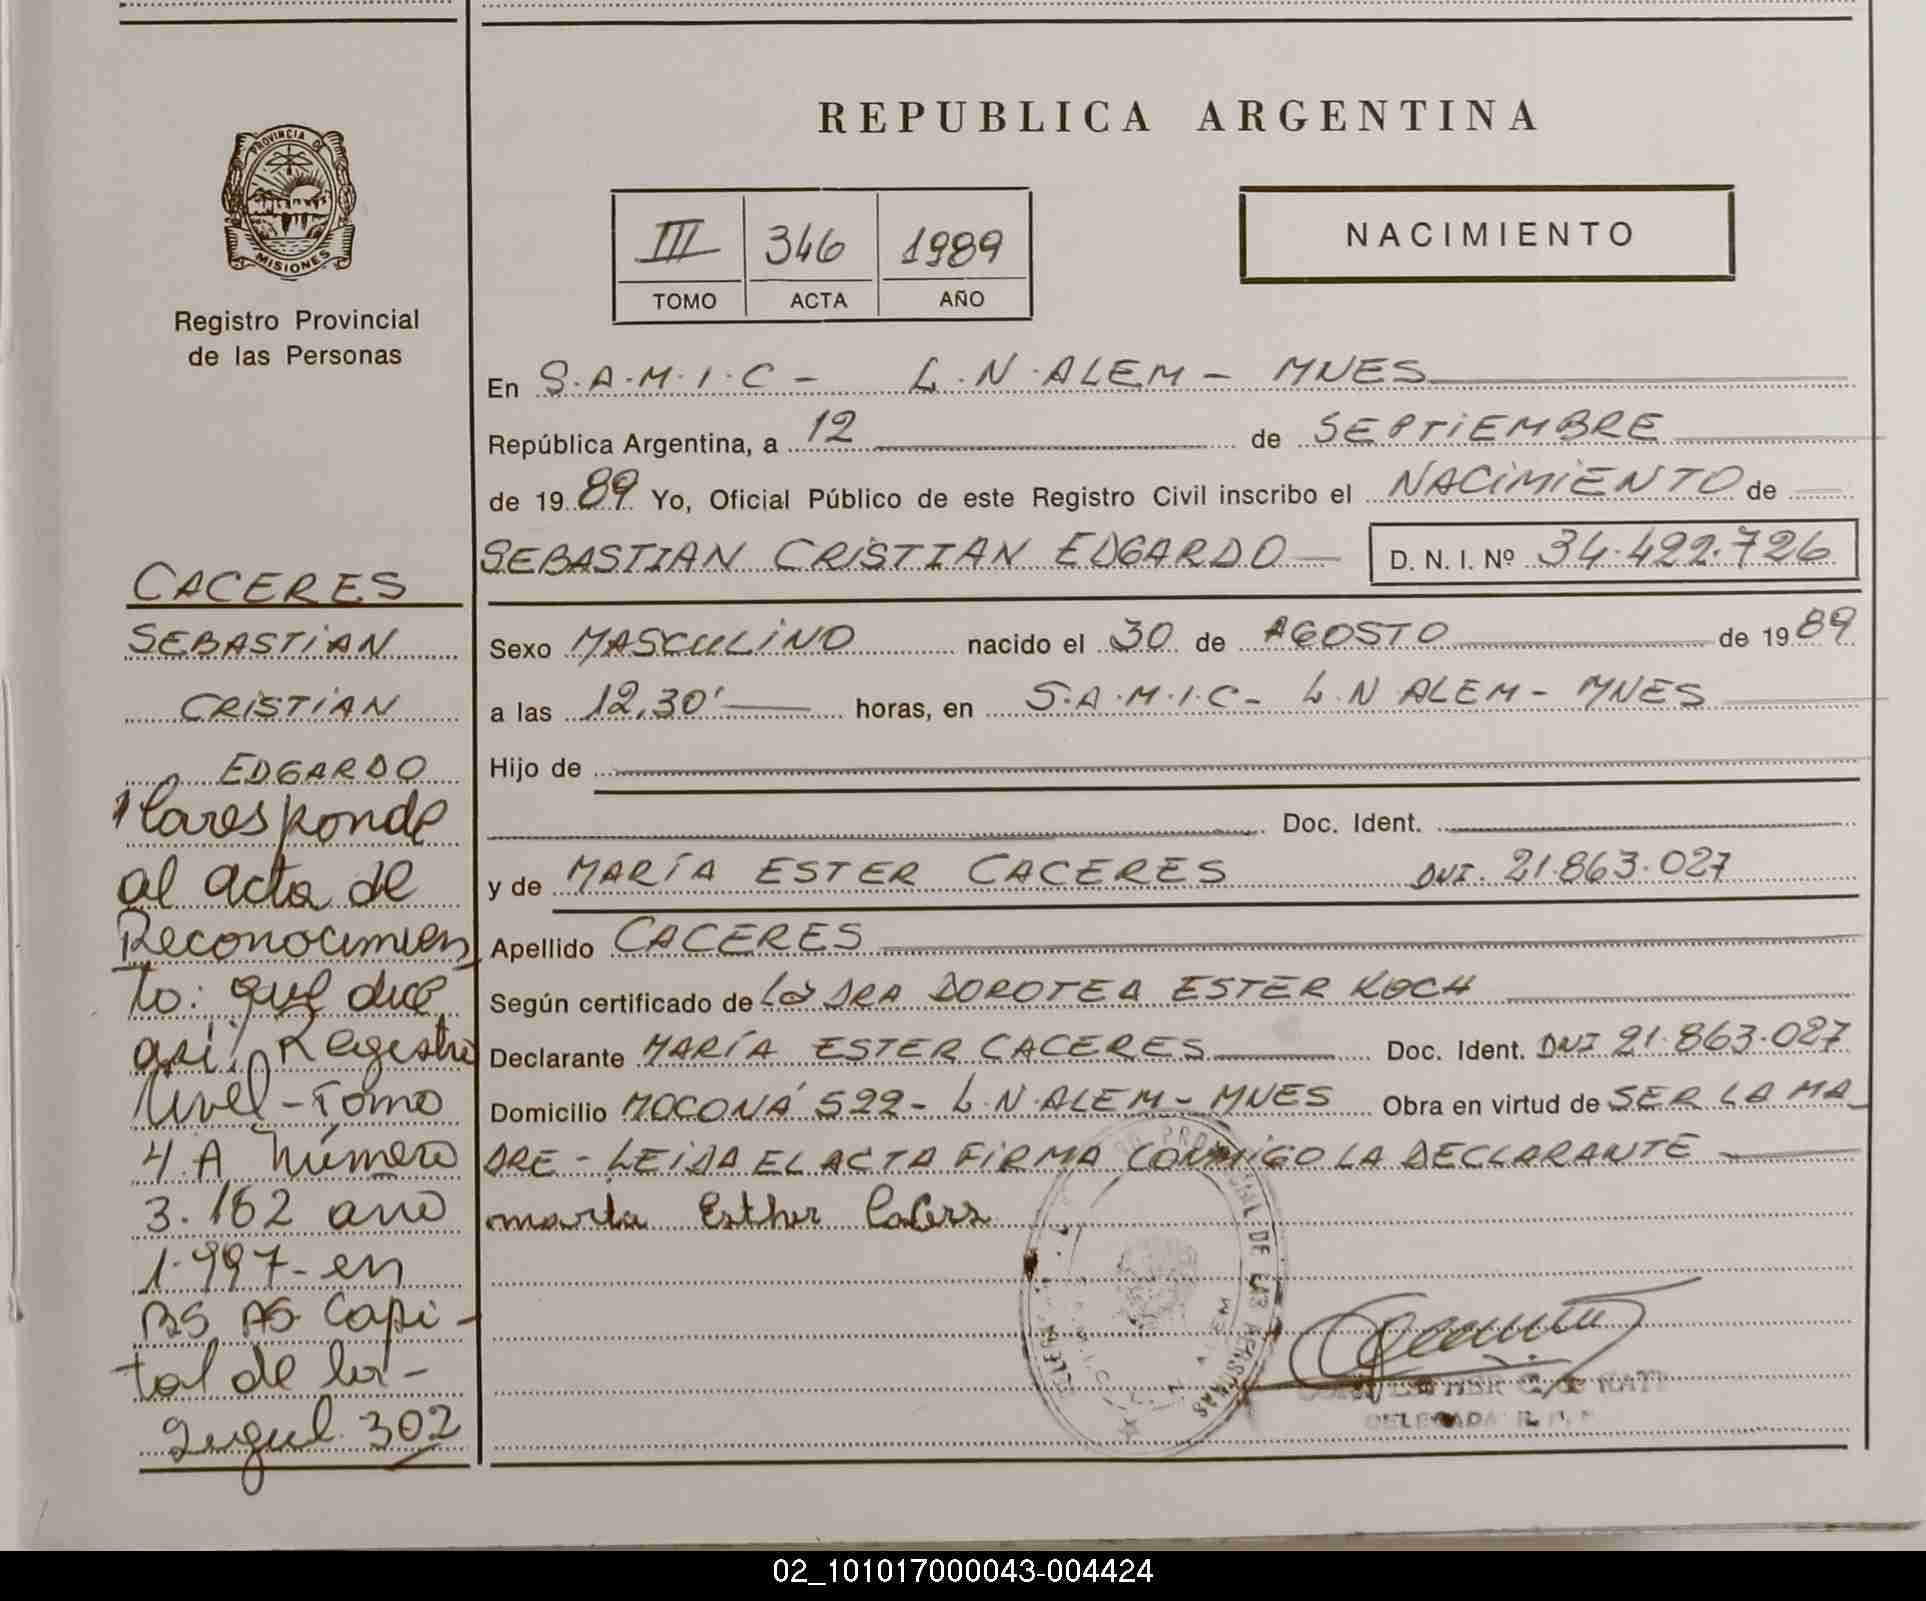 REPUBLICA ARGENTINA
PROVINCIA DE
MISIONES
Registro Provincial
de las Personas
III 346 1989
TOMO ACTA AÑO
NACIMIENTO
En S.A.M.I.C - L.N.ALEM - MNES
República Argentina, a 12 de SEPTIEMBRE
de 1989 Yo, Oficial Público de este Registro Civil inscribo el NACIMIENTO de
SEBASTIAN CRISTIAN EDGARDO D. N. I. Nº 34.422.726
Sexo MASCULINO nacido el 30 de AGOSTO de 1989
a las 12,30' horas, en S.A.M.I.C - L.N ALEM - MNES
Hijo de
Doc. Ident.
y de MARÍA ESTER CACERES DNI. 21.863.027
Apellido CACERES
Según certificado de La DRA DOROTEA ESTER KOCH
Declarante MARÍA ESTER CACERES Doc. Ident. DNI 21.863.027
Domicilio MOCONÁ 522 - L.N.ALEM - MNES Obra en virtud de SER LA MA_
DRE - LEIDA EL ACTA FIRMA CONMIGO LA DECLARANTE
maria Esther Caceres
DELEGADA R. P. P.
CACERES
SEBASTIAN
CRISTIAN
EDGARDO
Corresponde
al acta de
Reconocimien
to: que dice
asi; Registro
Civil - Tomo
4.A Número
3.162 año
1.997 - en
BS AS Capi -
tal de la
302
02_101017000043-004424